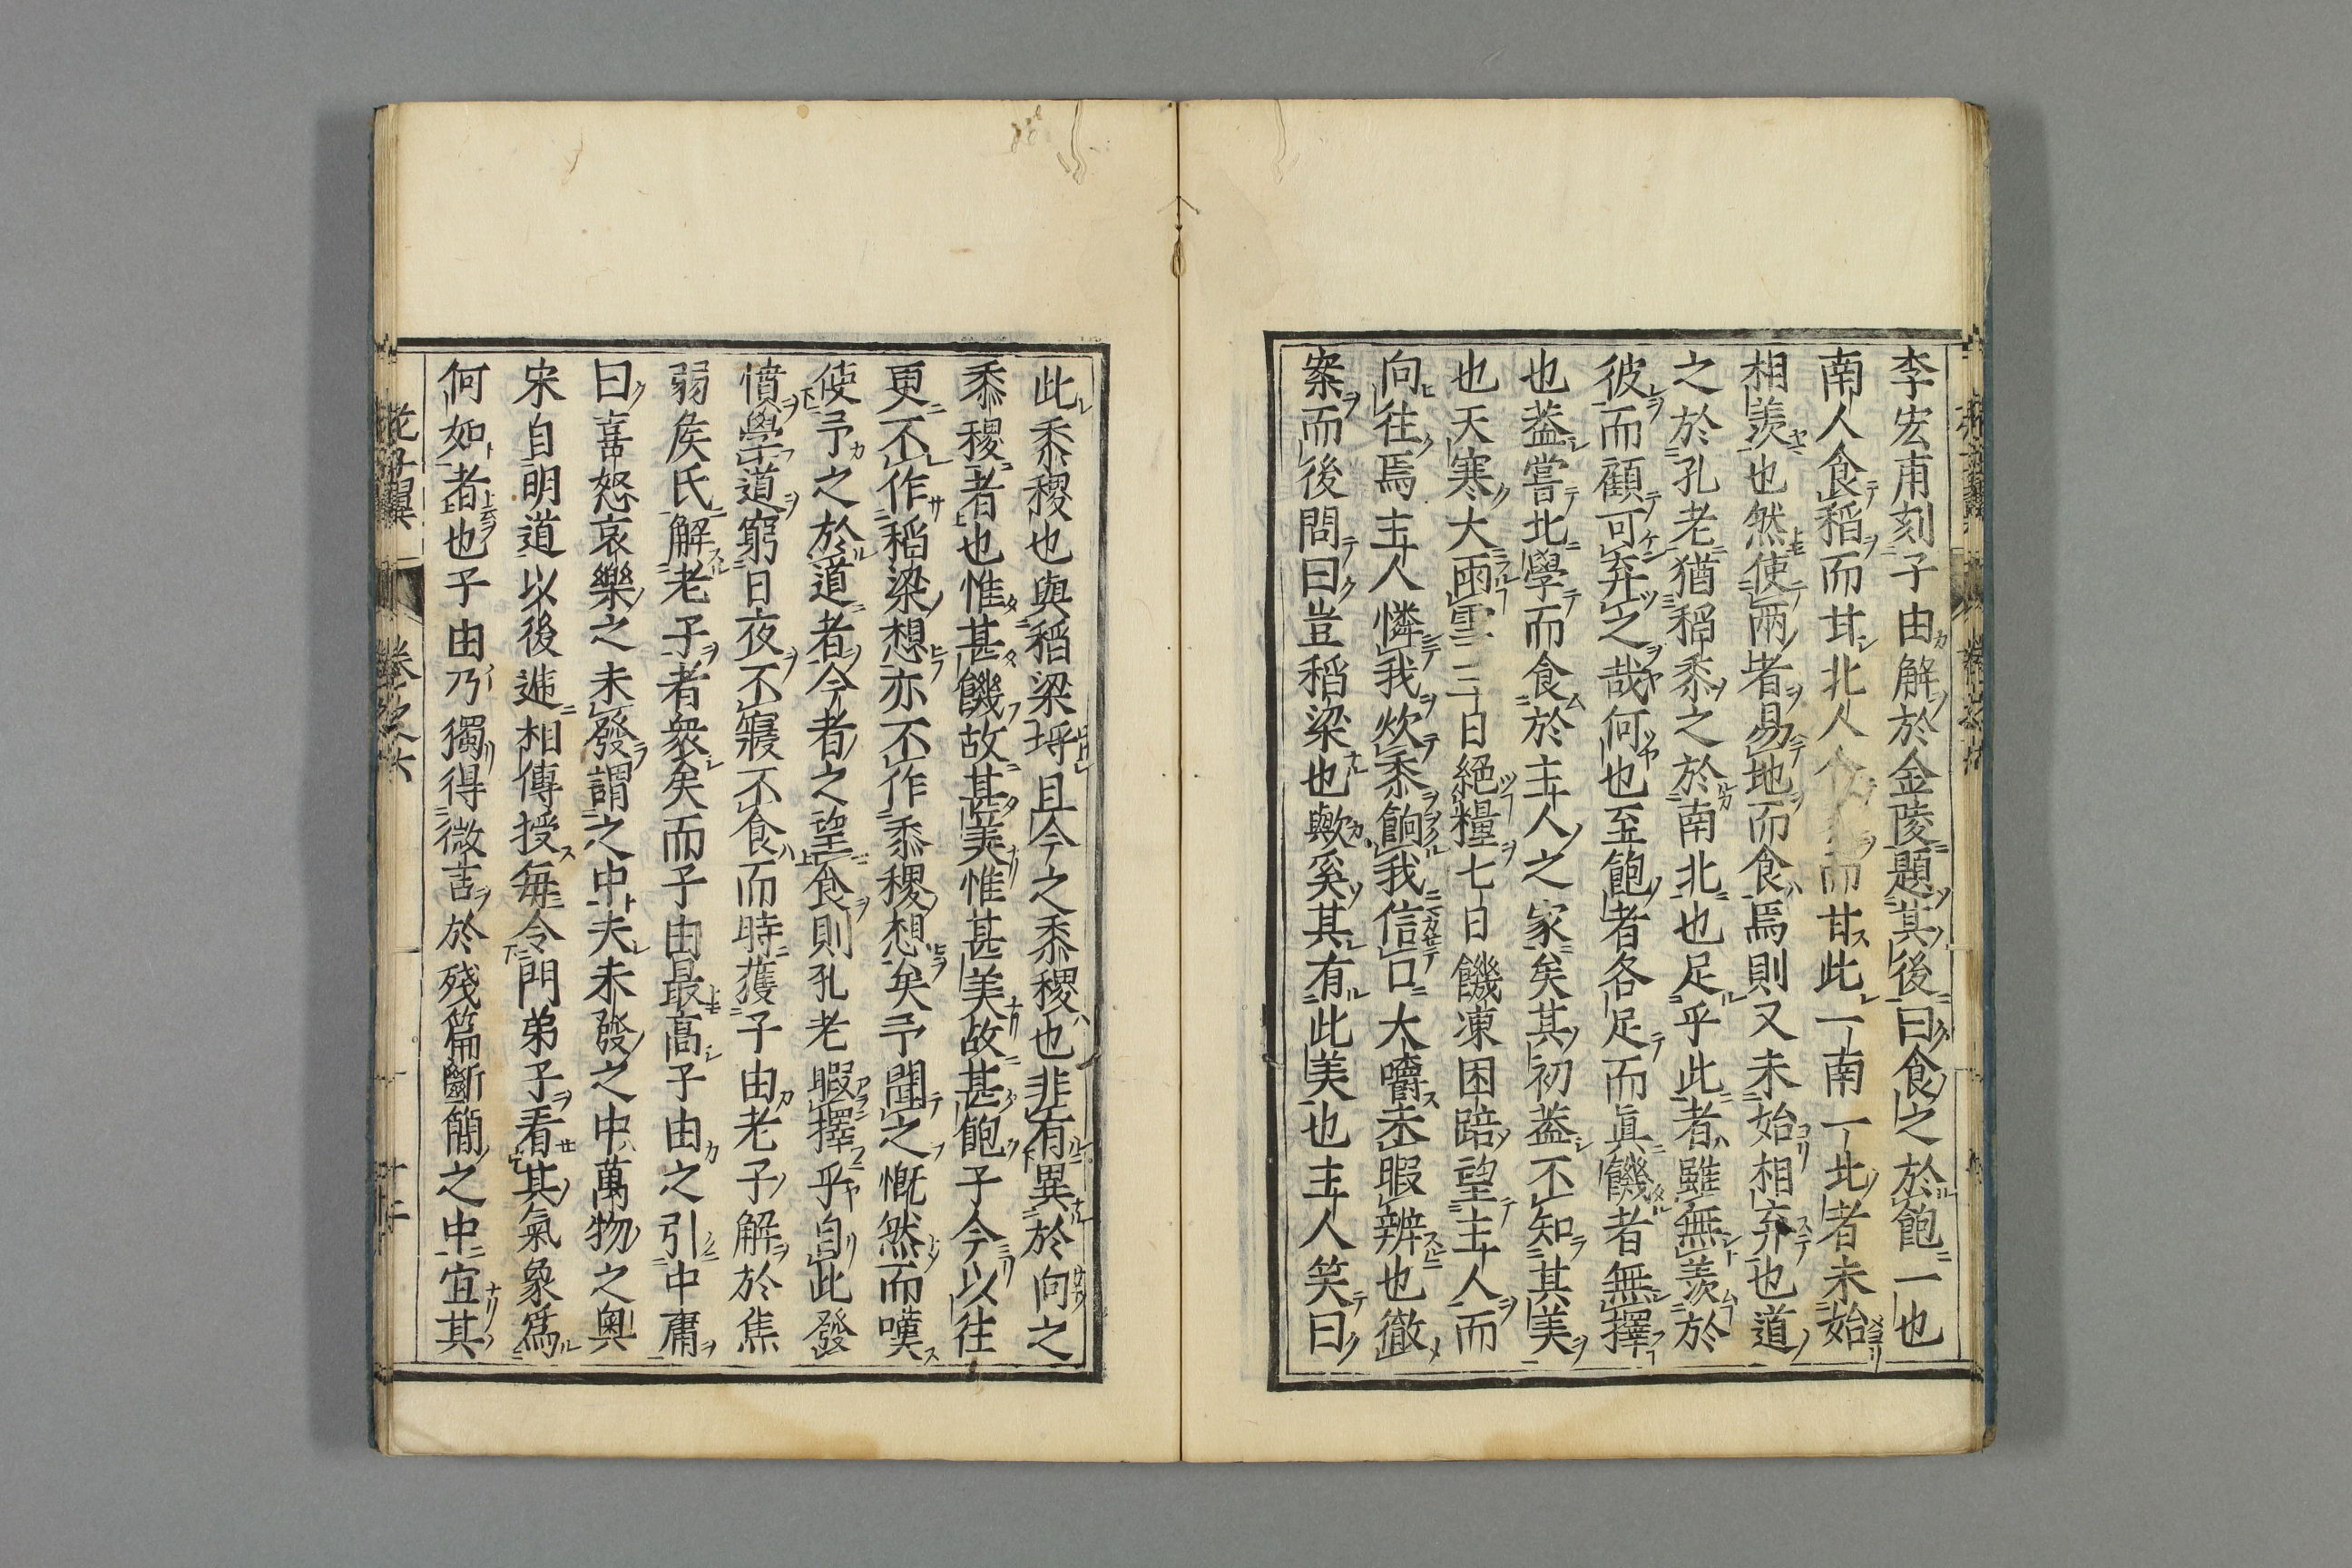 李宏甫刻子由解於金陵題其後曰食之於飽一也
南人食稻而甘北人食黍而甘此一南一北者未始
相羨也然使兩者易地而食焉則又未始相弃也道
之於孔老猶稻黍之於南北也足乎此者雖無羨於
彼而顧可弃之哉何也至飽者各足而眞饑者無擇
也葢嘗北學而食於主人之家矣其初葢不知其美
也天寒大雨雪三日絕糧七日饑凍困踣望主人而
向往焉主人憐我炊黍餉我信口大嚼未暇辨也徹
案而後問曰豈稻粱也歟奚其有此美也主人笑曰
此黍稷也與稻粱埒且今之黍稷也非有異於向之
黍稷者也惟甚饑故甚美惟甚美故甚飽子今以往
更不作稻粱想亦不作黍稷想矣予聞之慨然而嘆
使予之於道若今者之望食則孔老暇擇乎自此發
憤學道窮日夜不寢不食而時獲子由老子解於焦
弱侯氏解老子者衆矣而子由最高子由之引中庸
曰喜怒哀樂之未發謂之中夫未發之中萬物之奥
宋自明道以後遞相傳授每令門弟子看其氣象爲
何如者也子由乃獨得微言於殘篇斷簡之中宜其